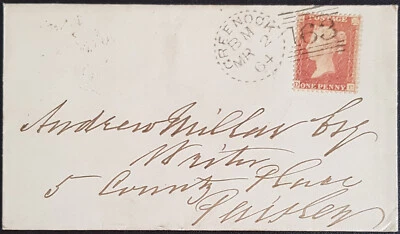 GREENOCK
BM
MR 2
64
163
POSTAGE
ONE PENNY
Andrew Millar Esq
Writer
5 County Place
Paisley